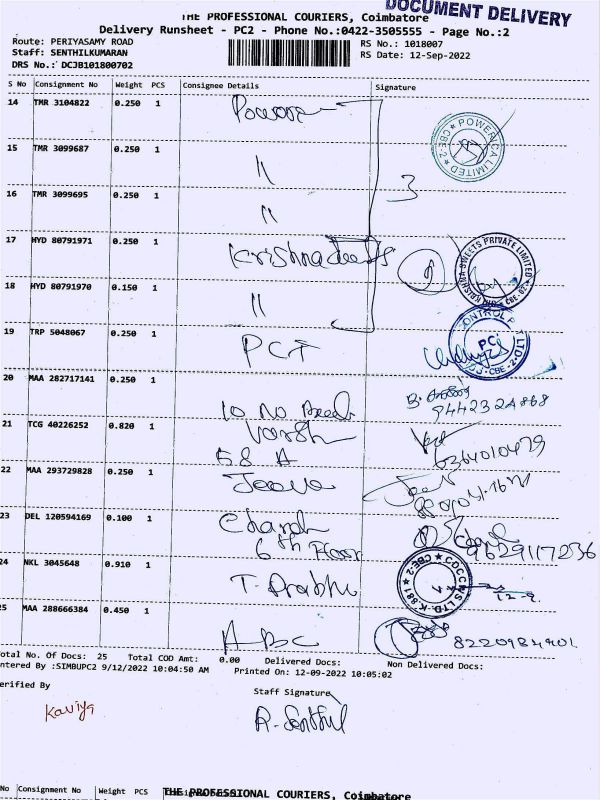 DOCUMENT DELIVERY
THE PROFESSIONAL COURIERS, Coimbatore
Delivery Runsheet - PC2 - Phone No.:0422-3505555 - Page No.:2
Route: PERIYASAMY ROAD
RS No.: 1018007
Staff: SENTHILKUMARAN
RS Date: 12-Sep-2022
DRS No.: DCJB101800702
S No Consignment No Weight PCS Consignee Details Signature
14 TMR 3104822 0.250 1 Power
POWERICA LIMITED ★ CBE-2 ★
15 TMR 3099687 0.250 1 "
16 TMR 3099695 0.250 1 " 3
17 HYD 80791971 0.250 1 Krishna
KRISHNA SWEETS PRIVATE LIMITED
18 HYD 80791970 0.150 1 "
19 TRP 5048067 0.250 1 PCI
PCI
CBE-2
20 MAA 282717141 0.250 1 10 No
9442324868
21 TCG 40226252 0.820 1 Varsh
6364010479
58 A
22 MAA 293729828 0.250 1 Jeeva
23 DEL 120594169 0.100 1 Charch
6th Floor
9629117236
24 NKL 3045648 0.910 1 T. Prabhu
25 MAA 288666384 0.450 1 ABC
Total No. Of Docs: 25 Total COD Amt: 0.00 Delivered Docs: Non Delivered Docs:
Entered By :SIMBUPC2 9/12/2022 10:04:50 AM Printed On: 12-09-2022 10:05:02
Verified By
Staff Signature
Kaviya
R. Senthil
No Consignment No Weight PCS THE PROFESSIONAL COURIERS, Coimbatore